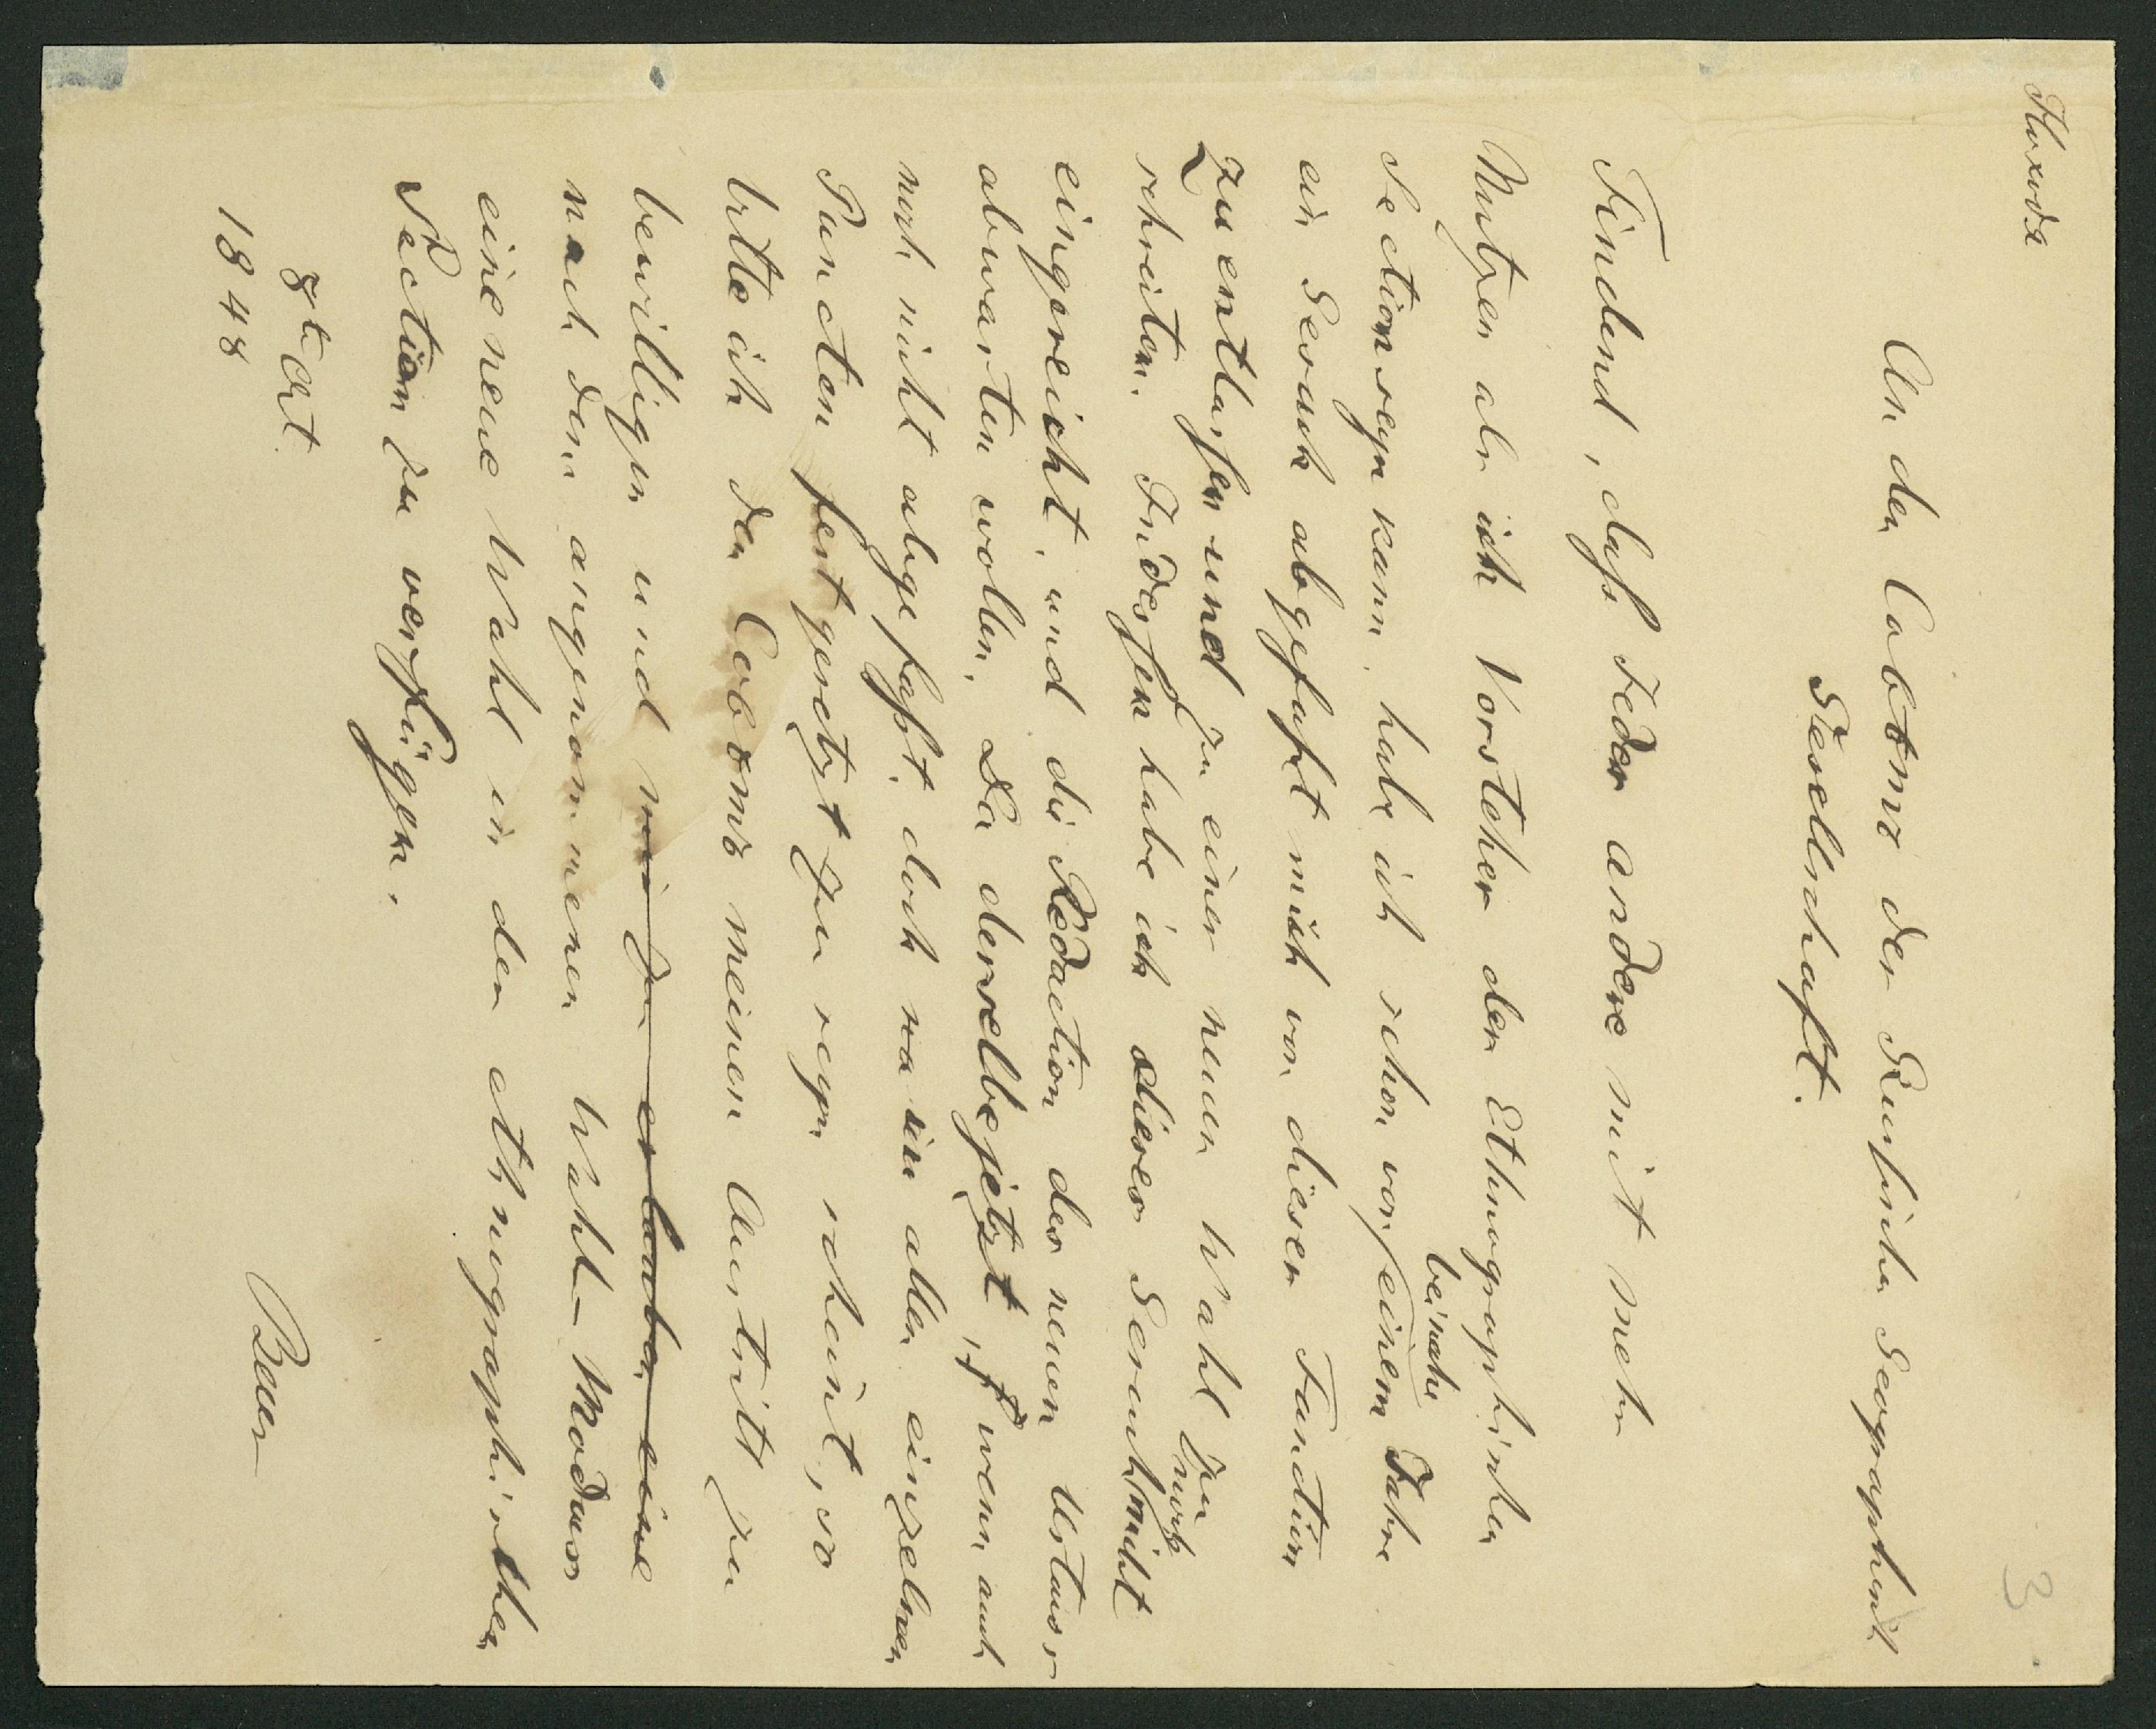 3
An den Cabtmr der Russischen Geographischen
Gesellschaft.
Findend, dass Jeder andere mit mehr
Nutzen als ich Vorsteher der Ethnographischen
Section seyn kann, habe ich schon vor beinahe einem Jahre
ein Gesuch abgefasst mich von dieser Function
zu entlassen und zu einer neuen Wahl zu
schreiten. Indessen habe ich dieses Gesuch noch nicht
eingereicht, und die Redaction der neuen Ustaws
abwarten wollen. Da derselbe jetzt, wenn auch
noch nicht abgefasst, doch in allen einzelnen
Puncten festgesetzt zu seyn scheint, so
bitte ich den meinen Austritt zu
bewilligen und mir zu erlauben eine
nach dem angenommenen Wahl-Modus
eine neue Wahl in der ethnographischen
Section zu verfügen.
8t Oct.
1848
Baer